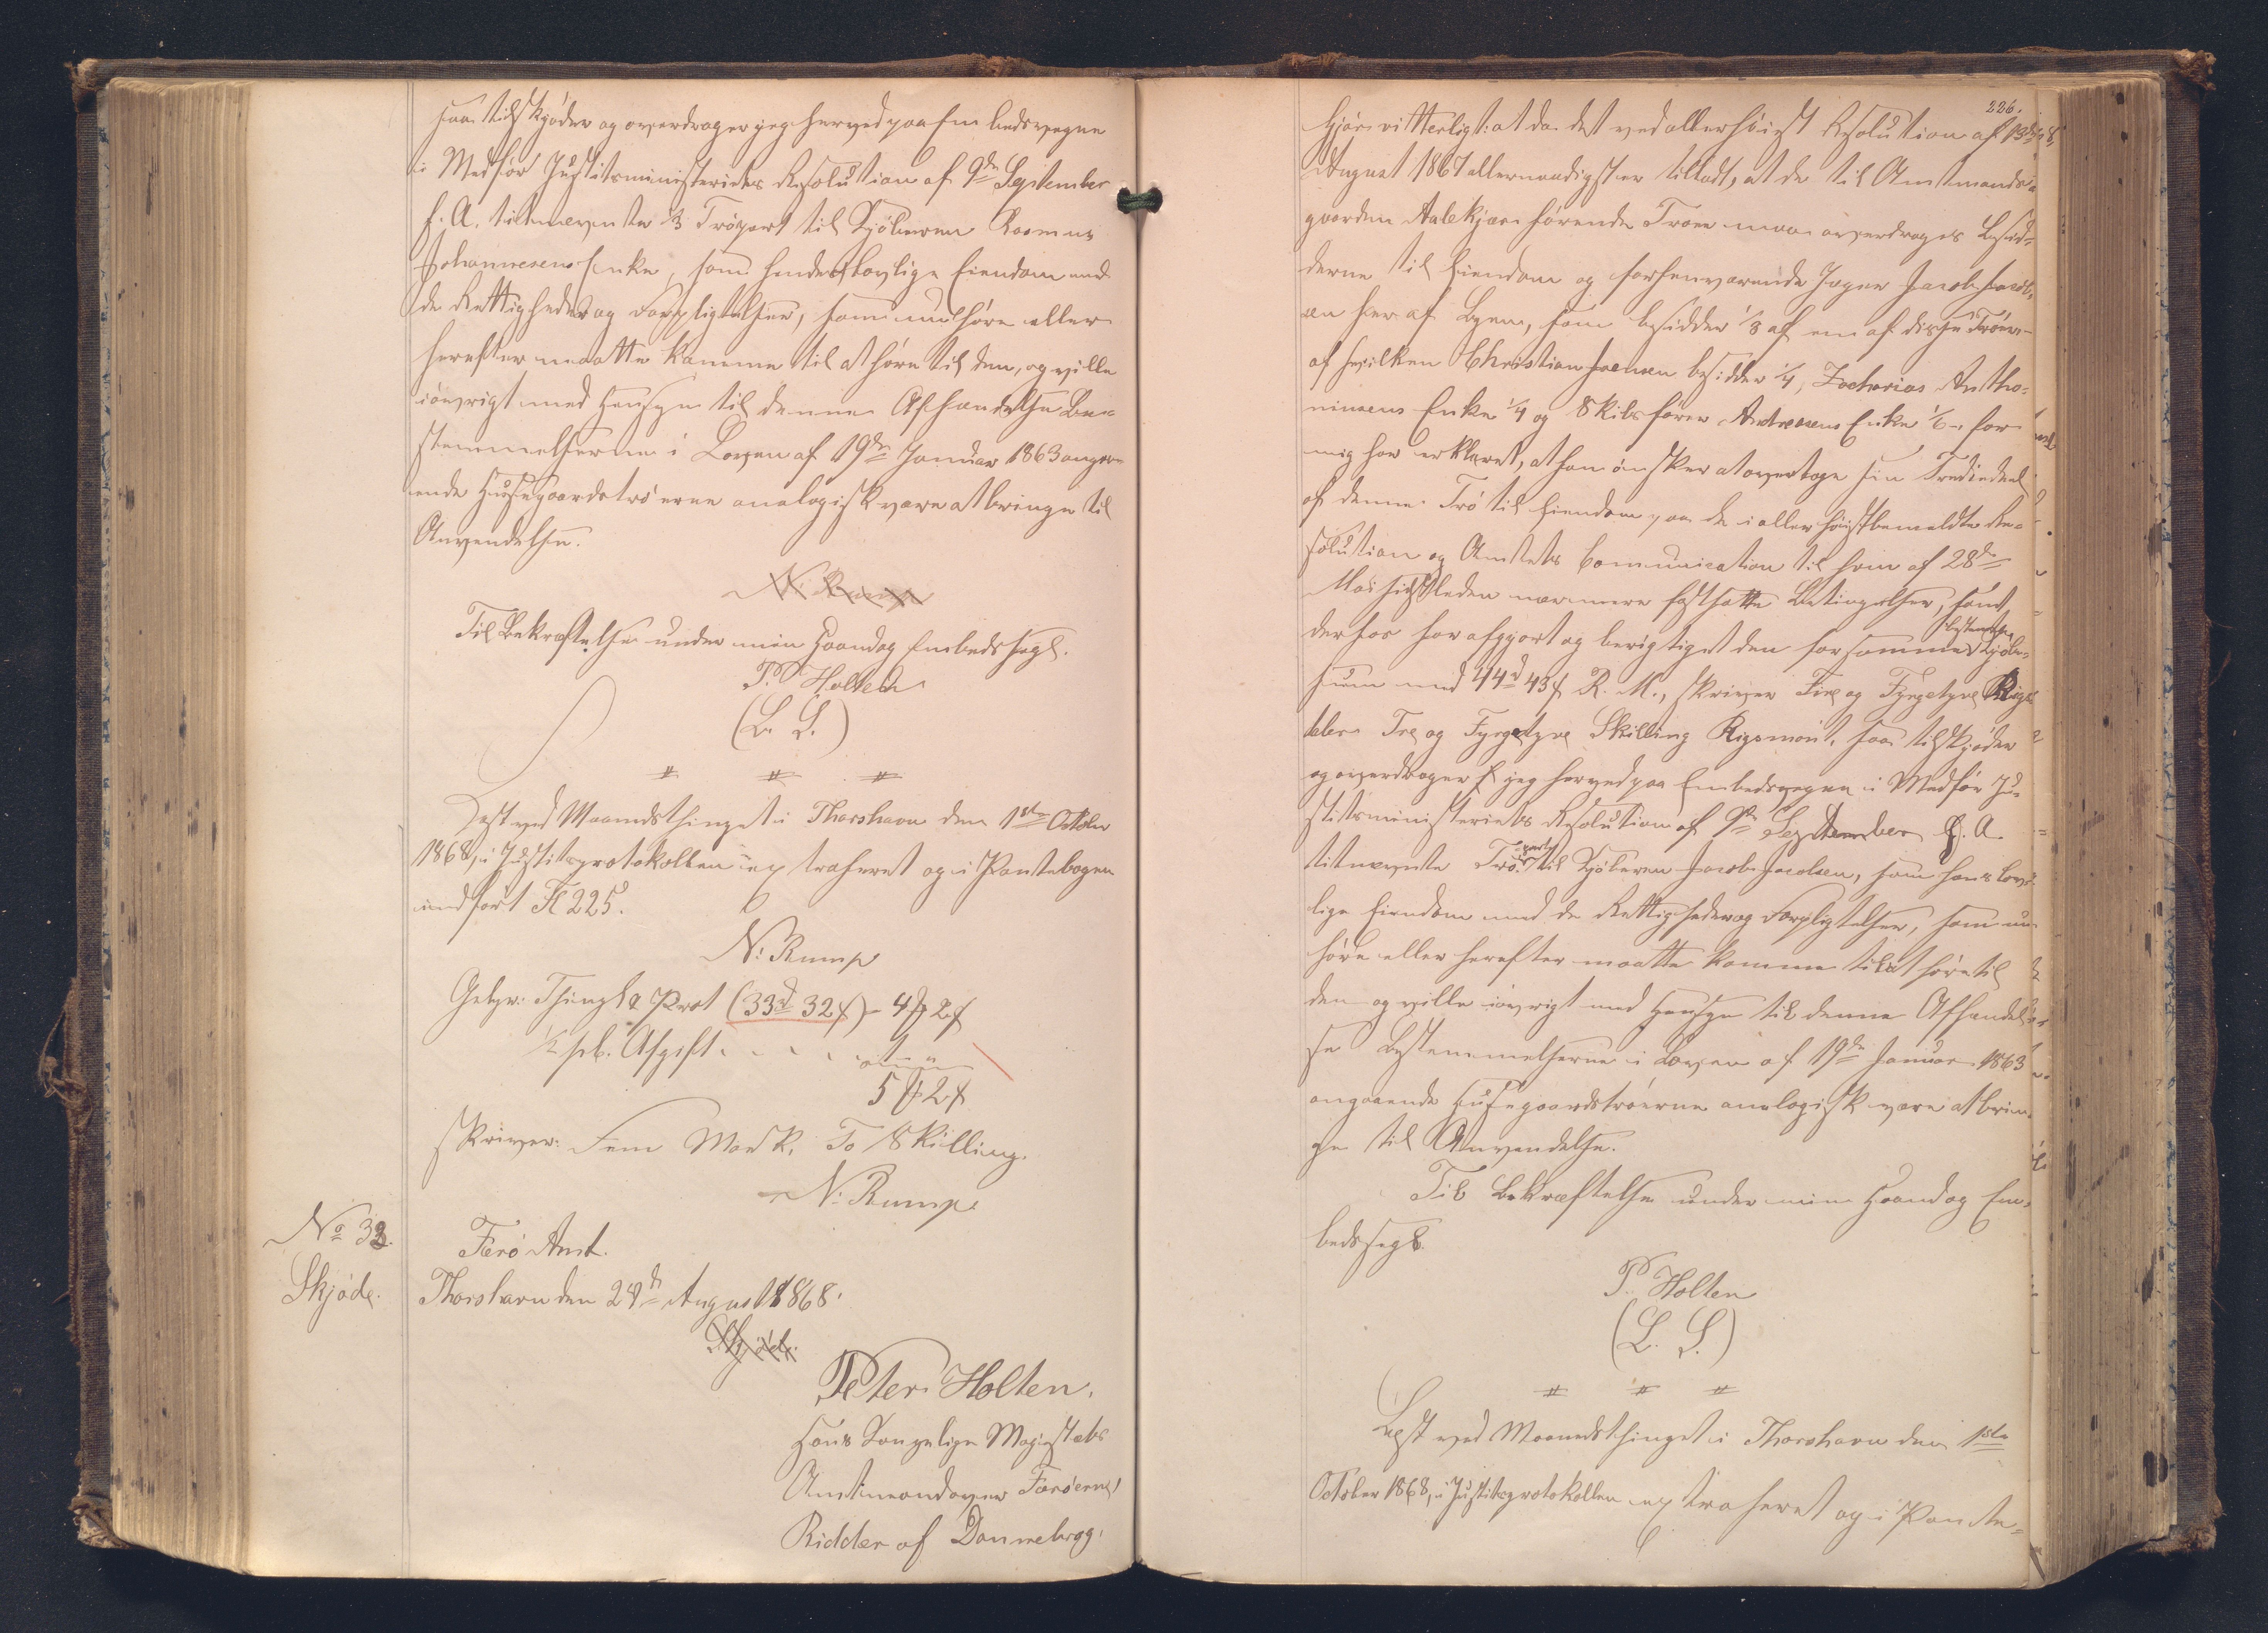 saa tilskjøder og overdrager jeg herved paa Embedsvegne
i Medfør Justitsministeriets Resolution af 9de September
f. A. bemeldte 1/3 Trøpart til Kjøberen Rasmus
Johannesens Enke, som hendes lovlige Eiendom med
de Rettigheder og Forpligtelser, som nu høre eller
herefter maatte komme til at høre til den, og ville
iøvrigt med Hensyn til denne Afhændelse Be-
stemmelserne i Loven af 19de Januar 1863 angaa-
ende Husegaardstrøerne analogisk være at bringe til
Anvendelse.
N. Rump
Til Bekræftelse under min Haand og Embedssegl.
P. Holten
(L. S.)
Læst ved Maanedsthinget i Thorshavn den 1ste October
1868, i Justitsprotokollen extraheret og i Pantebogen
indført Fl 225.
N. Rump
Gebyr: Thingl & Prot (33rd 32ß) - 4 ₻ 2ß
1/2 pCt. Afgift
5 ₻ 2ß
skriver: Fem Mark, To Skilling.
N. Rump
No 33.
Skjøde.
Færø Amt.
Thorshavn den 28de August 1868.
Skjøde.
Peter Holten,
Hans Kongelige Majestæts
Amtmand over Færøerne,
Ridder af Dannebrog,
226.
Gjør vitterligt: at da det ved allerhøiest Resolution af 13de
August 1867 allernaadigst er tilladt, at de til Amtmands-
gaarden Aalekjær hørende Trøer maa overdrages Besid-
derne til Eiendom og forhenværende Jæger Jacob Jacob-
sen her af Byen, som besidder 1/3 af en af disse Trøer-
af hvilken Christian Joensen besidder 1/4, Zacharias Antho-
niusens Enke 1/4 og Skibsfører Andreasens Enke 1/6 - for
mig har erklæret, at han ønsker at overtage sin Trediedeel
af denne Trø til Eiendom paa de i allerhøistbemeldte Re-
solution og Amtets Communication til ham af 28de
Mai sidstleden nærmere fastsatte Betingelser, samt
derhos har afgjort og berigtiget den for samme bestemte Kjøbe-
sum med 44rd 43ß R. M., skriver Fire og Fyrgetyve Rigs-
daler Tre og Fyrgetyve Skilling Rigsmønt, saa tilskjøder
og overdrager jeg herved paa Embedsvegne i Medfør Ju-
stitsministeriets Resolution af 9de September f. A.
bemeldte Trøpart til Kjøberen Jacob Jacobsen, som hans lov-
lige Eiendom med de Rettigheder og Forpligtelser, som nu
høre eller herefter maatte komme til at høre til
den og ville iøvrigt med Hensyn til denne Afhændel-
se Bestemmelserne i Loven af 19de Januar 1863
angaaende Husegaardstrøerne analogisk være at brin-
ge til Anvendelse.
Til Bekræftelse under min Haand og Em-
bedssegl.
P. Holten
(L. S.)
Læst ved Maanedsthinget i Thorshavn den 1ste
October 1868, i Justitsprotokollen extraheret og i Pante-